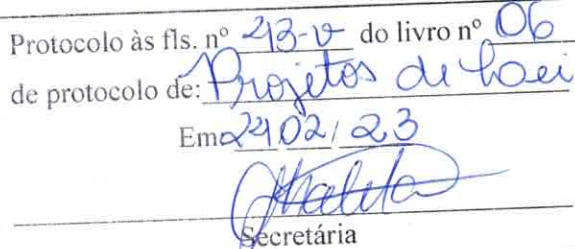 Protocolo às fls. nº 213-v do livro nº 06
de protocolo de: Projetos de Lei
Em 24/02/23
Secretária